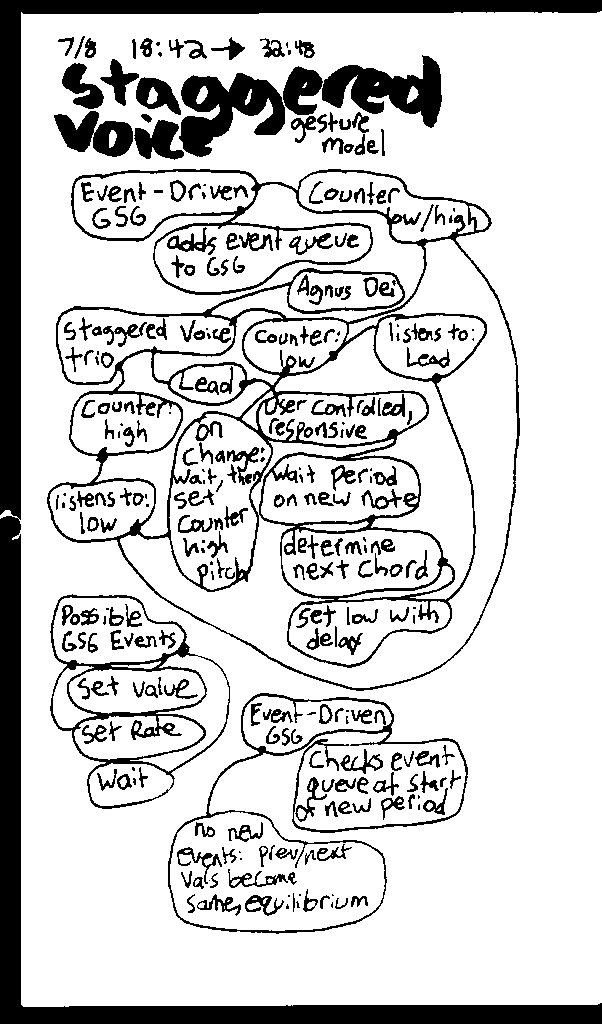 7/8 18:42 → 32:48
staggered
voice
gesture
model
Event-Driven
GSG
Counter
low/high
adds event queue
to GSG
Agnus Dei
Staggered Voice
trio
Counter:
low
listens to:
Lead
Lead
Counter:
high
User controlled,
responsive
on
change:
wait, then
set
counter
high
pitch
wait period
on new note
listens to:
low
determine
next chord
set low with
delay
Possible
GSG Events
set value
set Rate
Wait
Event-Driven
GSG
Checks event
queue at start
of new period
no new
events: prev/next
vals become
same, equilibrium